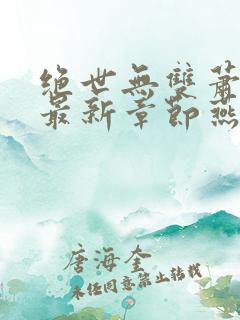 絕世無雙蕭
最新章節燕
唐海奎
未经同意禁止转载